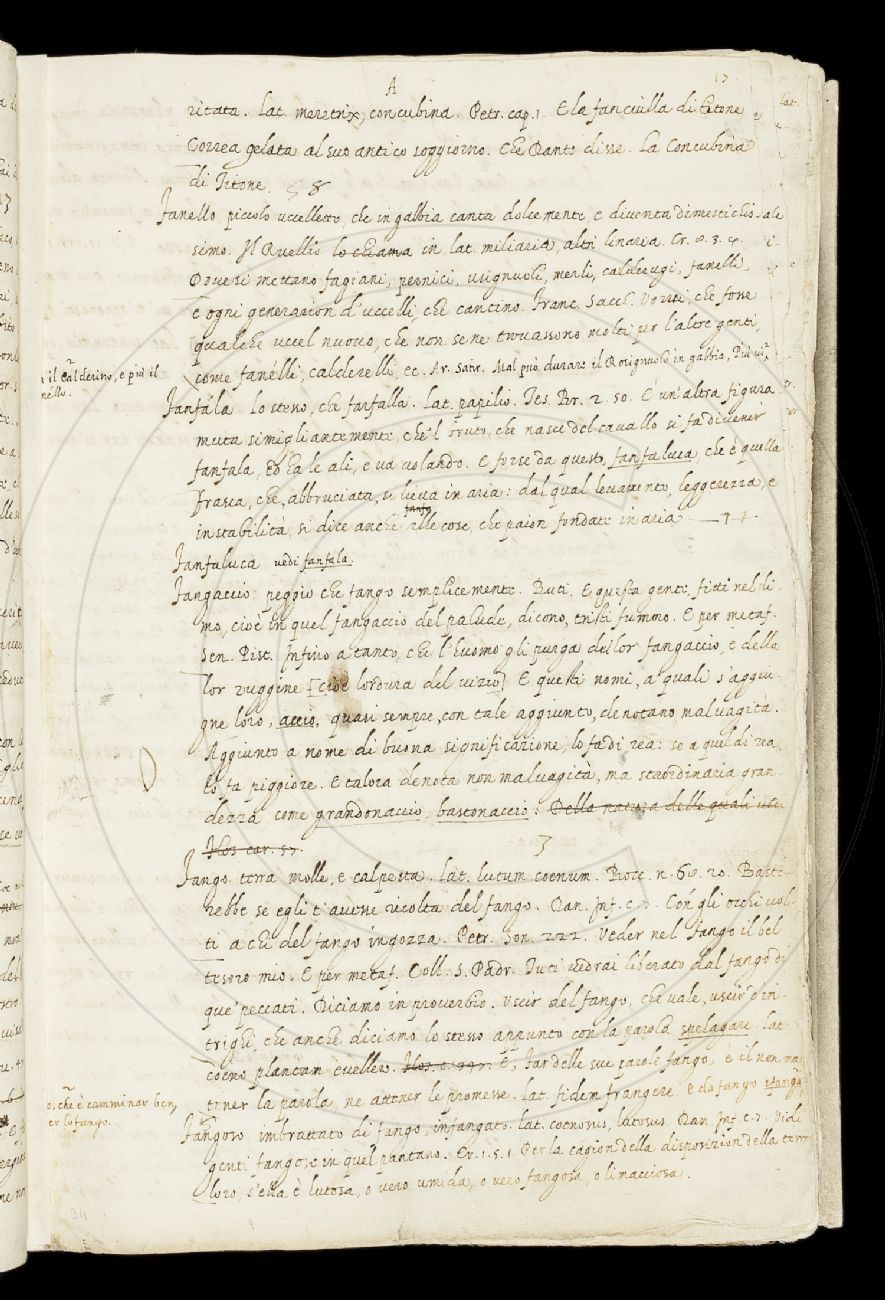 A
17
ritata. Lat. meretrix, concubina. Petr. cap. 1. E la fanciulla di Titone
Correa gelata al suo antico soggiorno. Che Dante disse. La Concubina
di Titone.
Fanello piccolo uccelletto, che in gabbia canta dolcemente, e diventa dimestichis-
simo. Il Ruellio lo chiama in lat. miliaria, altri linaria. Cr.
Dove si mettano fagiani, pernici, usignuoli, merli, calderugi, fanelli,
e ogni generazion d'uccelli, che cantino. Franc. Sacch. Vorresti, che fosse
qualche uccel nuovo, che non se ne trovassono molti per l'altre genti,
come fanelli, calderelli, ec. Ar. Satir. Mal può durare il Rosignuolo in gabbia, Più vi
il Calderino, e più il
nello.
Fanfala Lo stesso, che farfalla. Lat. papilio. Tes. Br. 2. 50. E un'altra figura
muta simigliantemente, che 'l bruto, che nasce del cavallo si fa divener
fanfala, ed ha le ali, e va volando. E forse da questo, fanfaluca, che è quella
frasca, che, abbruciata, se lieva in aria: dal qual levamento, leggerezza, e
instabilità, si dice anche alle cose, che paion fondate in aria
Fanfaluca vedi fanfala.
Fangaccio peggio che fango semplicemente. Buti. E questa gente, fitti nel li-
mo, cioè in quel fangaccio del palude, dicono, tristi fummo. E per metaf.
Sen. Pist. Infino a tanto, che l'huomo gli purga del lor fangaccio, e della
lor ruggine [cioè lordura del vizio] E questi nomi, a' quali s'aggiu-
gne loro, accio, quasi sempre, con tale aggiunto, denotano malvagità.
Aggiunto a nome di buona significazione, lo fa di rea: se a quel di rea,
lo fa piggiore. E talora denota non malvagità, ma straordinaria gran-
dezza, come grandonaccio, bastonaccio. Della natura delle quali
Flos car. 57.
3
Fango terra molle, e calpesta. Lat. lutum coenum. Bocc. n. 68. 20. Baste-
rebbe se egli t'avesse ricolta del fango. Dan. Inf. c. 7. Con gli occhi vol-
ti a chi del fango ingozza. Petr. Son. 222. Veder nel fango il bel
tesoro mio. E per metaf. Coll. S. Padr. Tuti vedrai liberato dal fango di
que' peccati. Diciamo in proverbio. Uscir del fango, che vale, uscir d'in-
trighi, che anche diciamo lo stesso appunto con la parola spelagare. Lat
coeno plantam evellere. E, Far delle sue parole fango, è il non ma
tener la parola ne attener le promesse. Lat. fidem frangere. E da fango sfangare
e, che è camminar ben,
er lo fango.
Fangoso imbrattato di fango, infangato. Lat. coenosus, lutosus. Dan. Inf. c. 7. Vidi
genti fangose in quel pantano. Cr. 1. 5. 1. Per la cagion della disposizion della terra
loro, s'ella è lutosa, o vero umida, o vero fangosa, o limacciosa.
34